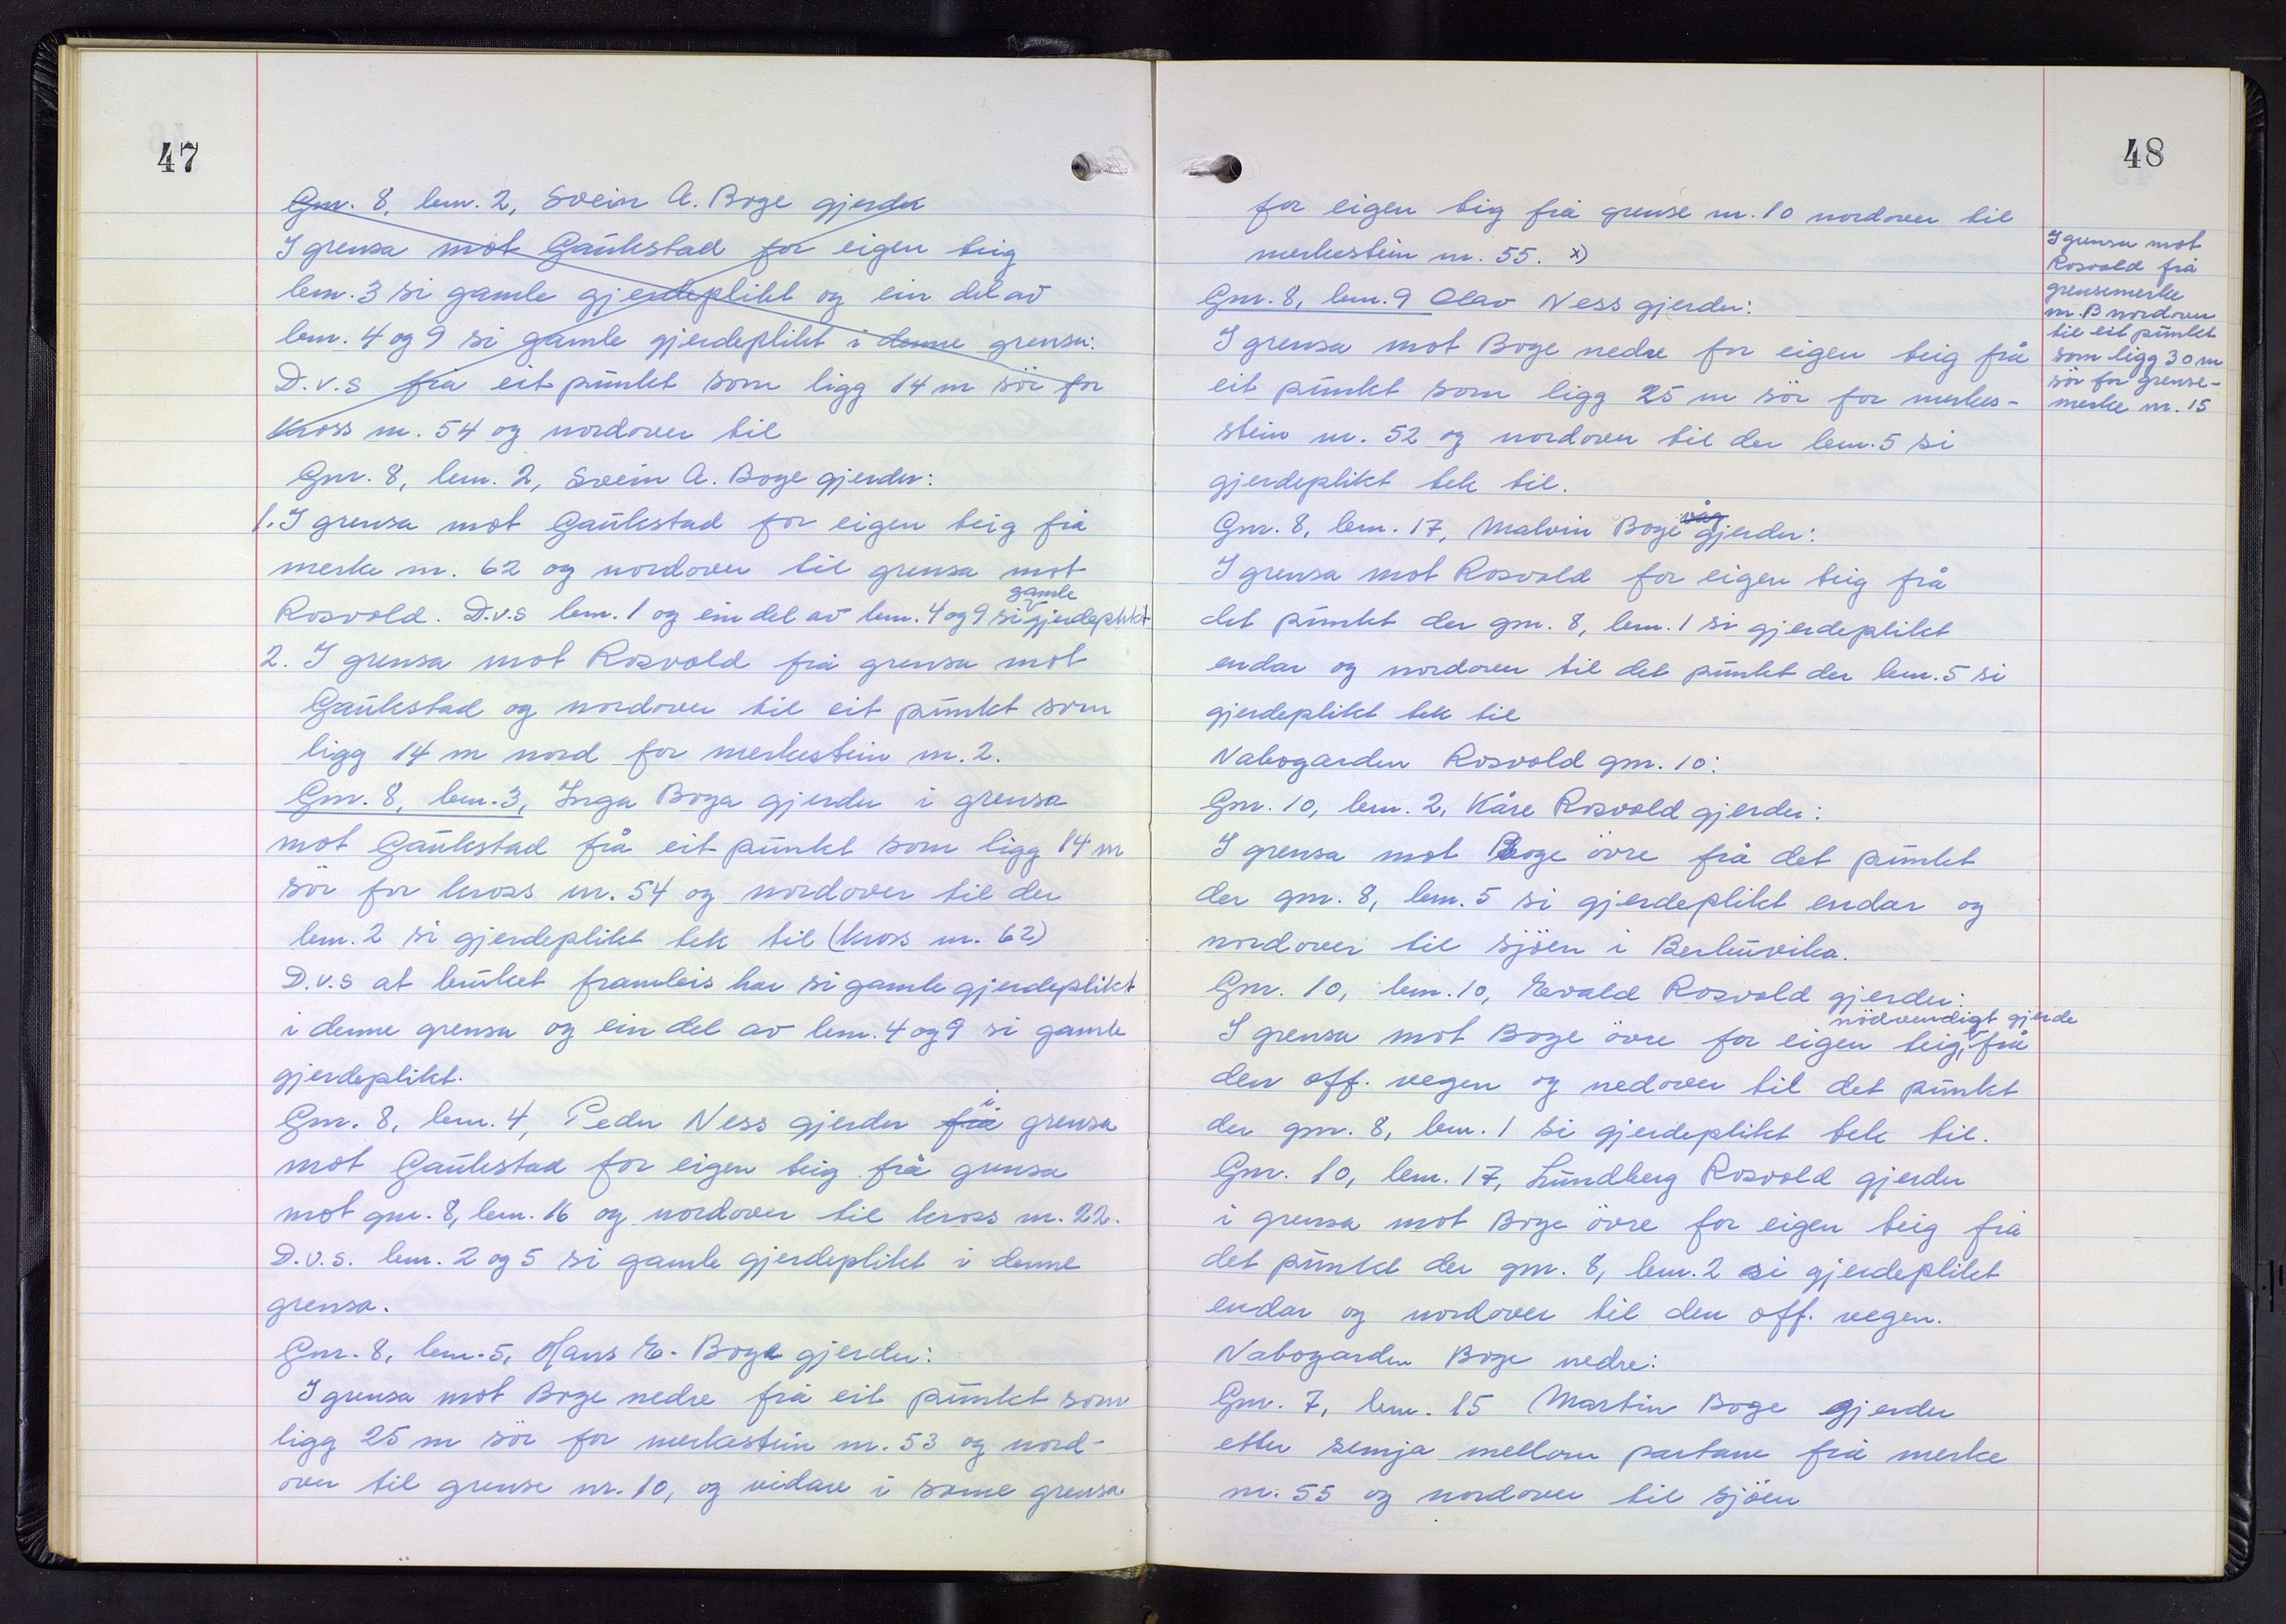 47
Gnr. 8, bnr. 2, Svein A. Boge gjerder
I grensa mot Gaukstad for eigen teig
bnr. 3 si gamle gjerdeplikt og ein del av
bnr. 4 og 9 si gamle gjerdeplikt i denne grensa:
D.v.s frå eit punkt som ligg 14 m sör for
Kross nr. 54 og nordover til
Gnr. 8, bnr. 2, Svein A. Boge gjerder:
1. I grensa mot Gaukstad for eigen teig frå
merke nr. 62 og nordover til grensa mot
gamle
Rosvold. D.v.s bnr. 1 og ein del av bnr. 4 og 9 si gjerdeplikt
2. I grensa mot Rosvold frå grensa mot
Gaukstad og nordover til eit punkt som
ligg 14 m nord for merkestein nr. 2.
Gnr. 8, bnr. 3, Inga Boga gjerder i grensa
mot Gaukstad frå eit punkt som ligg 14 m
sör for kross nr. 54 og nordover til der
bnr. 2 si gjerdeplikt tek til (Kross nr. 62)
D.v.s at bruket framleis har si gamle gjerdeplikt
i denne grensa og ein del av bnr. 4 og 9 si gamle
gjerdeplikt.
i
Gnr. 8, bnr. 4, Peder Ness gjerder frå grensa
mot Gaukstad for eigen teig frå grensa
mot gnr. 8, bnr. 16 og nordover til kross nr. 22.
D.v.s. bnr. 2 og 5 si gamle gjerdeplikt i denne
grensa.
Gnr. 8, bnr. 5, Hans E. Boge gjerder:
I grensa mot Boge nedre frå eit punkt som
ligg 25 m sör for merkestein nr. 53 og nord-
over til grense nr. 10, og vidare i same grensa
48
for eigen teig frå grense nr. 10 nordover til
merkestein nr. 55. x)
I grensa mot
Rosvold frå
grensemerke
nr. 13 nordover
til eit punkt
som ligg 30 m
sör for grense-
merke nr. 15
Gnr. 8, bnr. 9 Olav Ness gjerder:
I grensa mot Boge nedre for eigen teig frå
eit punkt som ligg 25 m sör for merkes-
stein nr. 52 og nordover til der bnr. 5 si
gjerdeplikt tek til.
våg
Gnr. 8, bnr. 17, Malvin Boge gjerder:
I grensa mot Rosvold for eigen teig frå
det punkt der gnr. 8, bnr. 1 si gjerdeplikt
endar og nordover til det punkt der bnr. 5 si
gjerdeplikt tek til
Nabogarden Rosvold gnr. 10:
Gnr. 10, bnr. 2, Kåre Rosvold gjerder:
I grensa mot Boge övre frå det punkt
der gnr. 8, bnr. 5 si gjerdeplikt endar og
nordover til sjöen i Berkuvika.
Gnr. 10, bnr. 10, Evald Rosvold gjerder:
nödvendigt gjerde
I grensa mot Boge övre for eigen teig, frå
den off. vegen og nedover til det punkt
der gnr. 8, bnr. 1 si gjerdeplikt tek til.
Gnr. 10, bnr. 17, Lundberg Rosvold gjerder
i grensa mot Boge övre for eigen teig frå
det punkt der gnr. 8, bnr. 2 si gjerdeplikt
endar og nordover til den off. vegen.
Nabogarden Boge nedre:
Gnr. 7, bnr. 15 Martin Boge gjerder
etter semja mellom partane frå merke
nr. 55 og nordover til sjöen